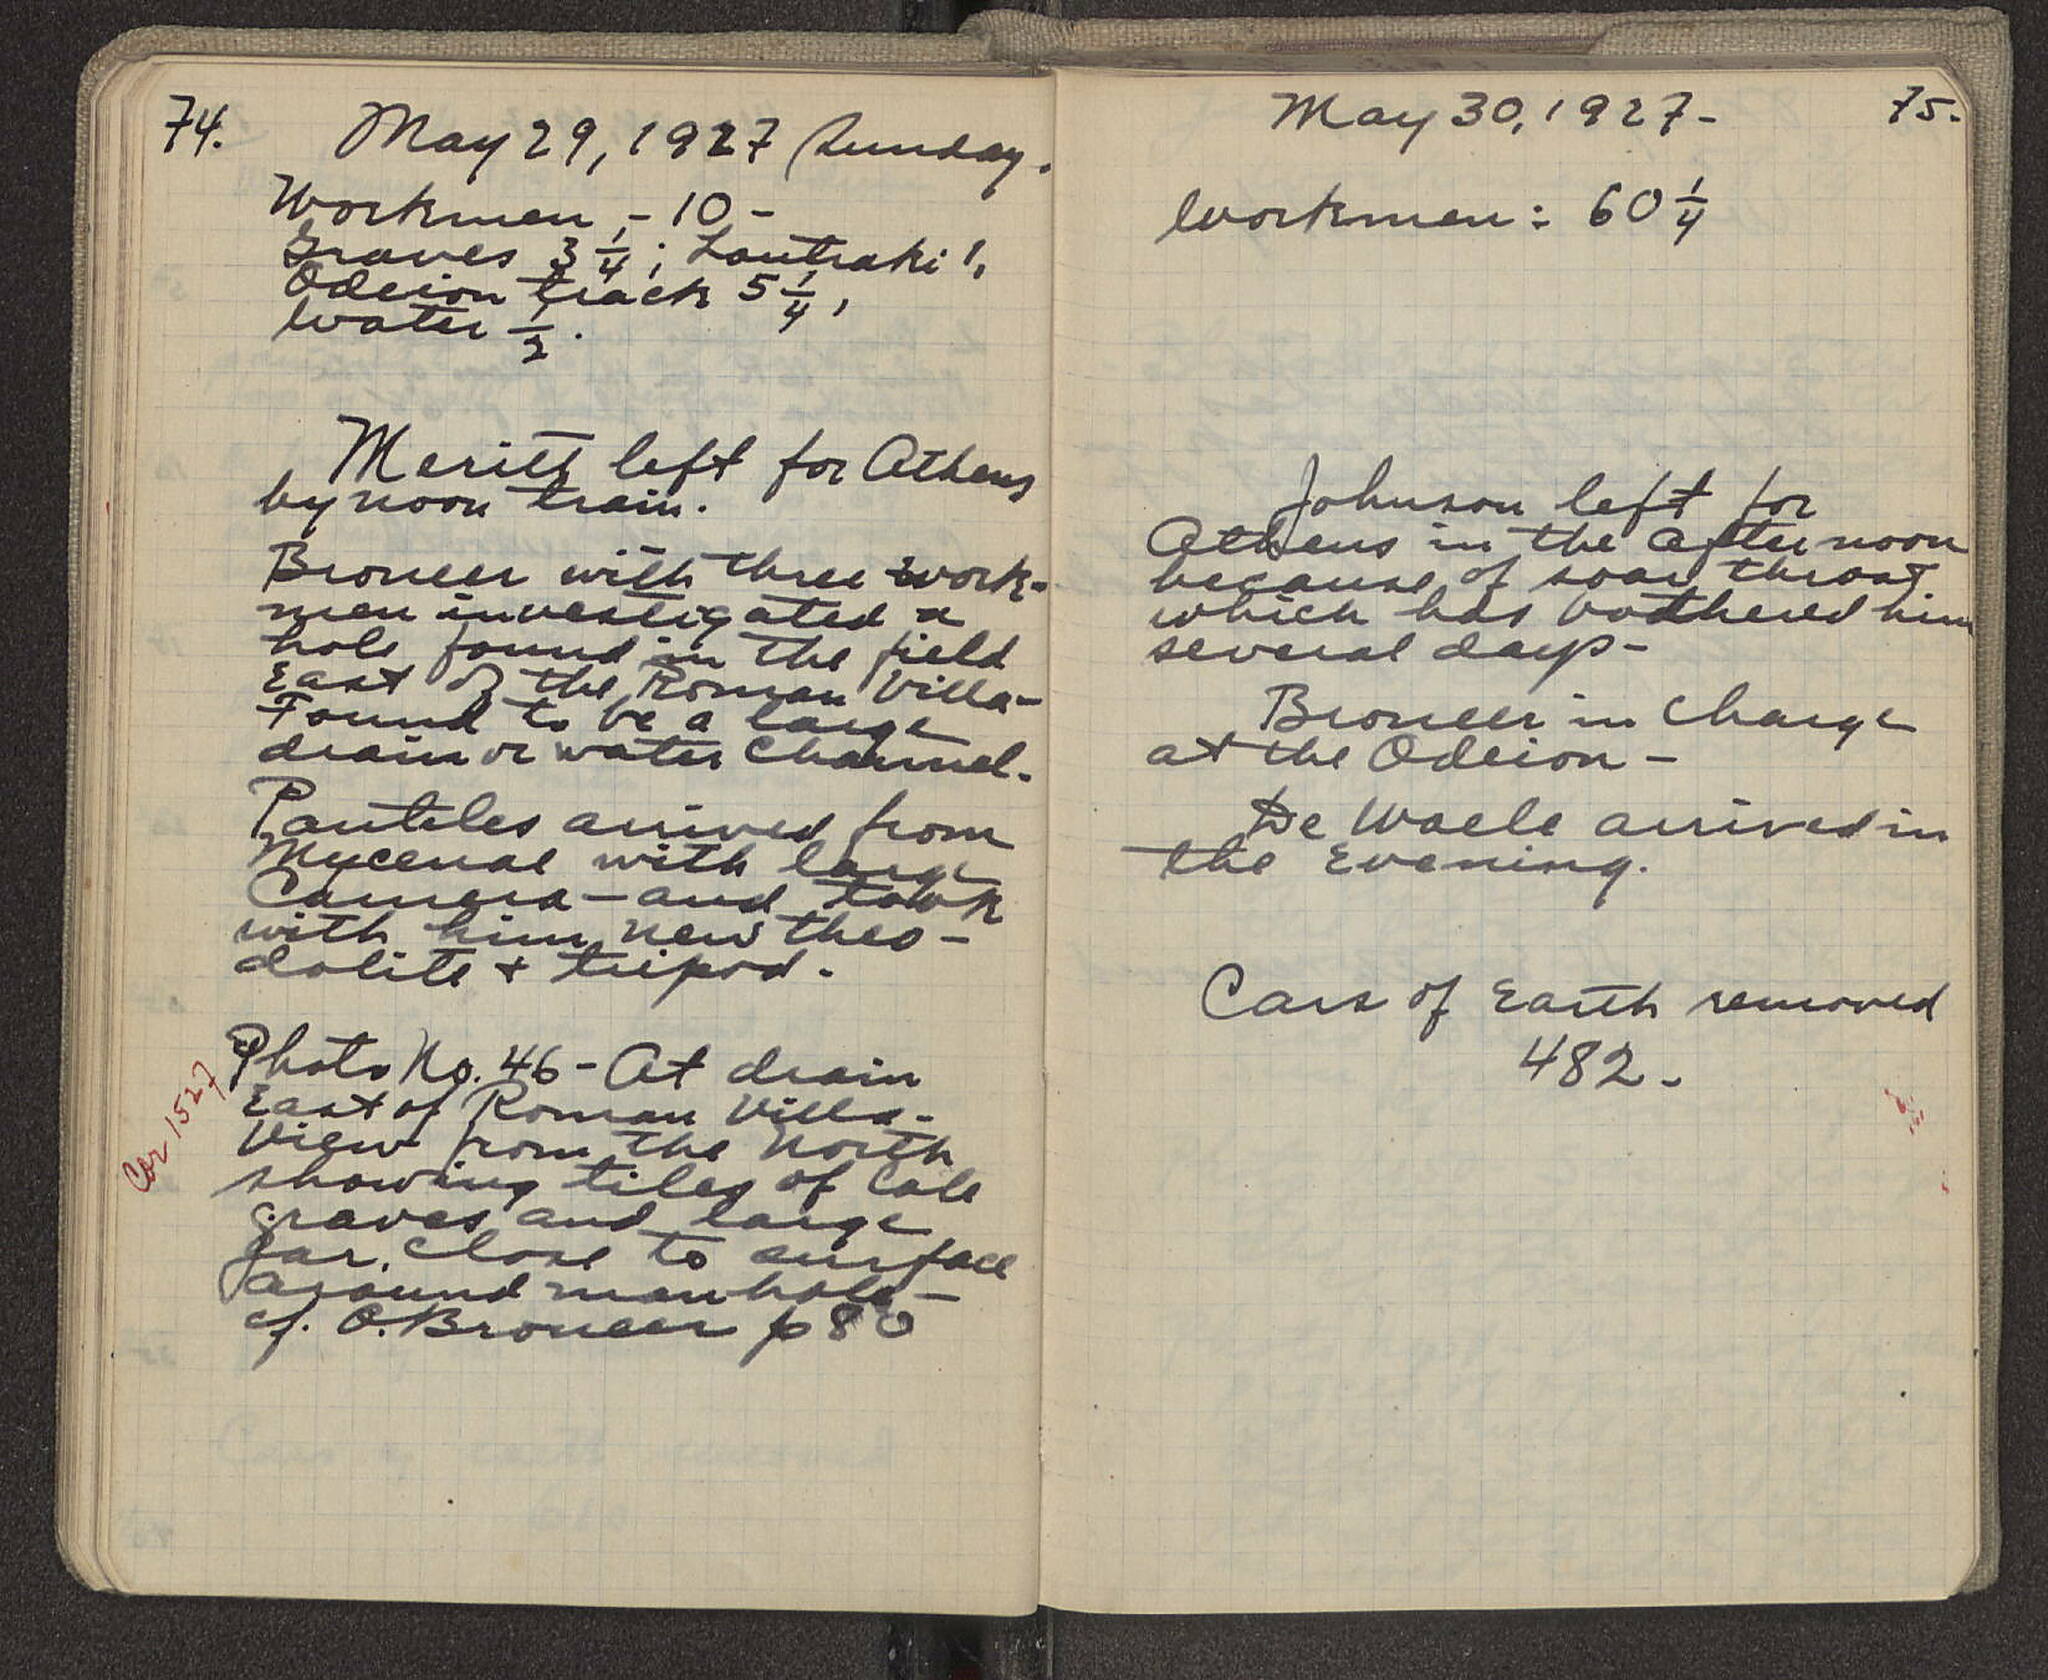 74.
May 29, 1927 Sunday.
Workmen - 10 -
Graves 3 1/4; Loutraki 1,
Odeion track 5 1/4,
Water 1/2.
Meritt left for Athens
by noon train.
Broneer with three work-
men investigated a
hole found in the field
East of the Roman Villa -
Found to be a large
drain or water channel.
Panteles arrived from
Mycenae with large
Camera - and took
with him new theo-
dolite + tripod.
Photo No. 46 - At drain
East of Roman Villa -
View from the North
showing tiles of late
graves and large
jar, close to surface
around manhole -
cf. O. Broneer p 80
Cor 1527
75.
May 30, 1927 -
Workmen: 60 1/4
Johnson left for
Athens in the afternoon
because of soar throat
which has bothered him
several days -
Broneer in charge
at the Odeion -
De Waele arrived in
the Evening.
Cars of Earth removed
482 -